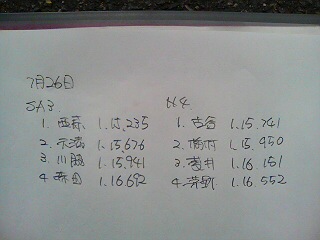 7月26日
SA3.
1. 西森 1.15.235
2. 1.15.676
3. 川脇 1.15.941
4. 森田 1.16.692
N4.
1. 古谷 1.15.741
2. 1.15.950
3. 1.16.151
4. 1.16.552